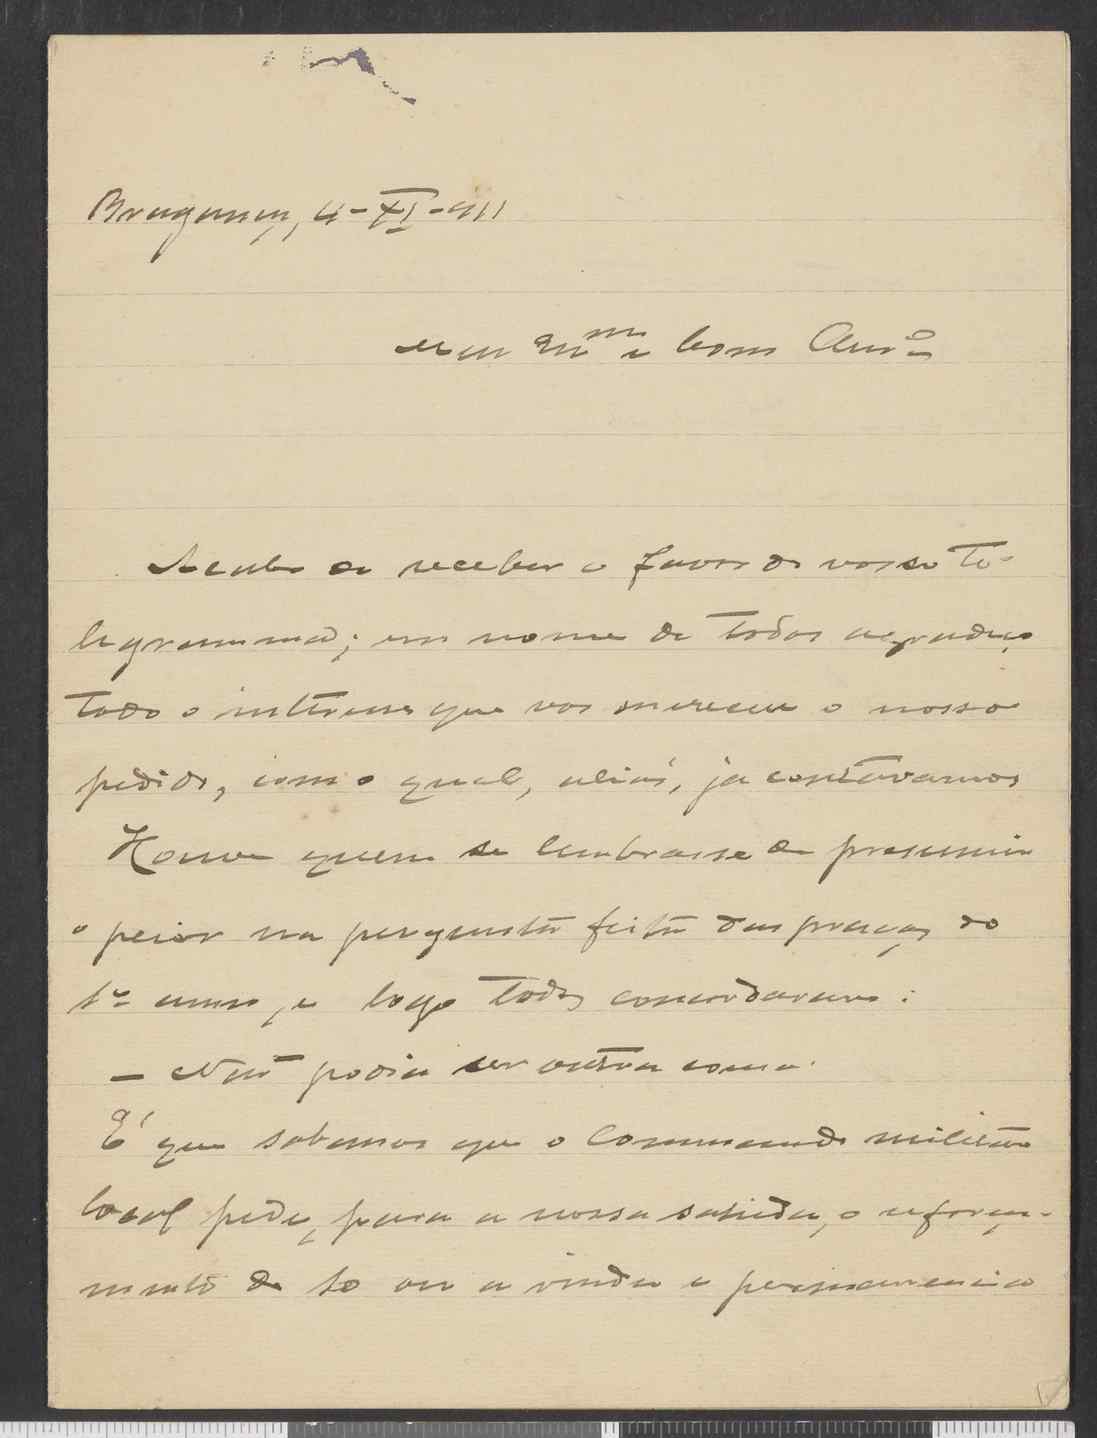 Bragança, 4-XI-911
Meu Exmo e bom Amo
Acabo de receber o favor do vosso te-
legramma; em nome de todos agradeço
todo o interesse que vos mereceu o nosso
pedido, com o qual, aliás, ja contavamos
Houve quem se lembrasse de presumir
o peior na pergunta feita das praças do
1º anno, e logo todos concordaram:
— Não podia ser outra coisa.
É que sabemos que o Commando militar
local pede, para a nossa sahida, o reforça-
mento do 10 ou a vinda e permanencia